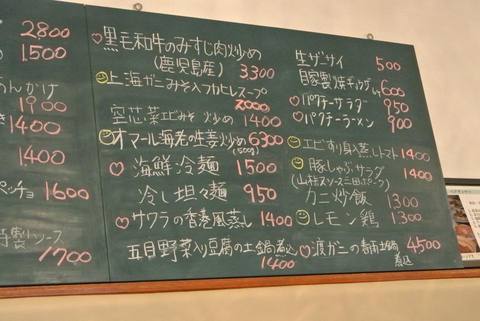 2800
1500
んかけ
1900
1400
1400
ペッチョ
1600
特製ソース
1700
黒毛和牛のみすじ肉炒め
(鹿児島産) 3300
上海ガニみそ入フカヒレスープ
2000
空芯菜エビみそ炒め 1400
オマール海老の生姜炒め 6300
(500g)
海鮮冷麺 1500
冷し坦々麺 950
サワラの香港風蒸し 1400
五目野菜入り豆腐の土鍋煮込
1400
生ザーサイ 500
自家製焼ギョウザ 600
パクチーサラダ 950
パクチーラーメン 900
エビすり身蒸しトマト 1400
豚しゃぶサラダ 1400
カニ炒飯 1300
レモン鶏 1300
渡ガニの春雨土鍋 4,500
煮込